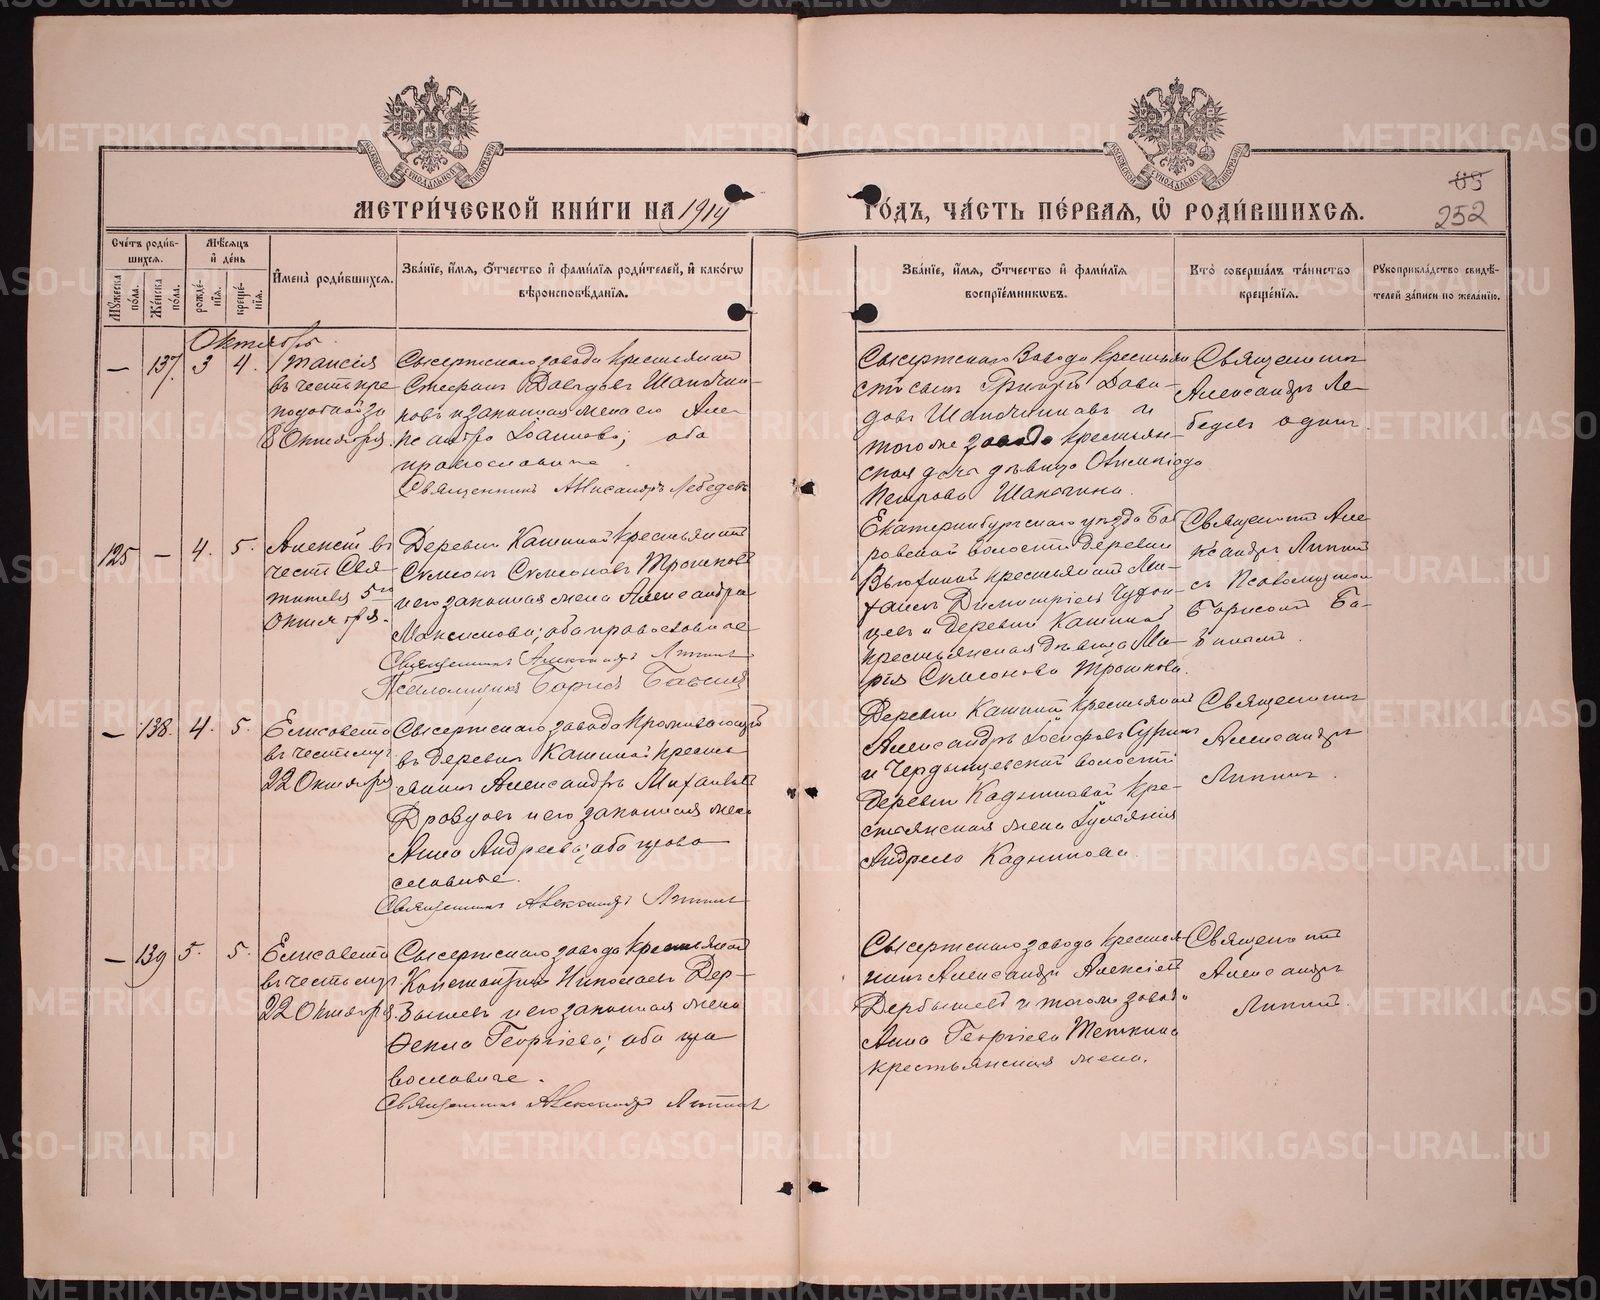 МЕТРИ́ЧЕСКОЙ КНИ́ГИ НА 1914
ГО́ДЪ, ЧА́СТЬ ПЕ́РВАѦ, Ѡ РОДИ́ВШИХСѦ.
252
Сче́тъ роди́в-
шихсѧ.
Мѣ́сѧцъ
и҆ де́нь
Мꙋ́жеска по́ла.
Же́нска по́ла.
рожде́-нїѧ.
креще́-нїѧ.
И҆мена̀ роди́вшихсѧ.
Зва́нїе, и҆́мѧ, ѻ҆́тчество и҆ фами́лїѧ роди́телей, и҆ како́гѡ
вѣроисповѣ́данїѧ.
Зва́нїе, и҆́мѧ, ѻ҆́тчество и҆ фами́лїѧ
воспрїе́мникѡвъ.
Кто̀ соверша́лъ та́инство
креще́нїѧ.
Рꙋкоприкла́дство свидѣ́-
телей за́писи по жела́нїю.
Октябрь.
— 137. 3 4.
Таисія
въ честь пре
подобной за
8 Октября.
Сысертскаго завода крестьянинъ
Стефанъ Давыдовъ Шапочни-
ковъ и законная жена его Алек
сандра Іоаннова; оба
православные
Священникъ Александръ Лебедевъ
Сысертскаго Завода крестьян
Григорій Давы-
довъ Шапочниковъ и
того же завода крестьян-
ская дочь дѣвица Олимпіада
Петрова
Священникъ
Александръ Ле-
бедевъ одинъ.
125 — 4. 5.
Алексій въ
честь Свя-
тителя 5го
Октября.
Деревни Кашиной крестьянинъ
Симеонъ Симеоновъ Трошковъ
и его законная жена Александра
Максимова; оба православные
Священникъ Александръ
Псаломщикъ Борисъ
Екатеринбургскаго уѣзда Бо
ровской волости деревни
крестьянинъ Ми-
хаилъ Димитріевъ
и деревни Кашиной
крестьянская дѣвица Ма-
рія Симеонова Трошкова.
Священникъ Але
ксандръ
съ Псаломщикомъ
Борисомъ
— 138. 4. 5.
Елисавета
въ честь муч.
22 Октября
Сысертскаго завода проживающій
въ деревни Кашиной кресть
янинъ Александръ Михаиловъ
и его законная жена
Анна Андреева; оба право
славные.
Священникъ Александръ
Деревни Кашиной крестьянинъ
Александръ Іосифовъ Суринъ
и волости
деревни Кадниковой кре-
стьянская жена Іуліанія
Андреева Кадникова.
Священникъ
Александръ
— 139 5. 5.
Елисавета
въ честь муч
22 Октября.
Сысертскаго завода крестьянинъ
Константинъ Николаевъ Дер-
бышевъ и его законная жена
Ѳекла Георгіева; оба пра
вославные.
Священникъ Александръ
Сысертскаго завода крестья
нинъ Александръ Алексіевъ
Дербышевъ и того же завода
Анна Георгіева Теткина
крестьянская жена.
Священникъ
Александръ